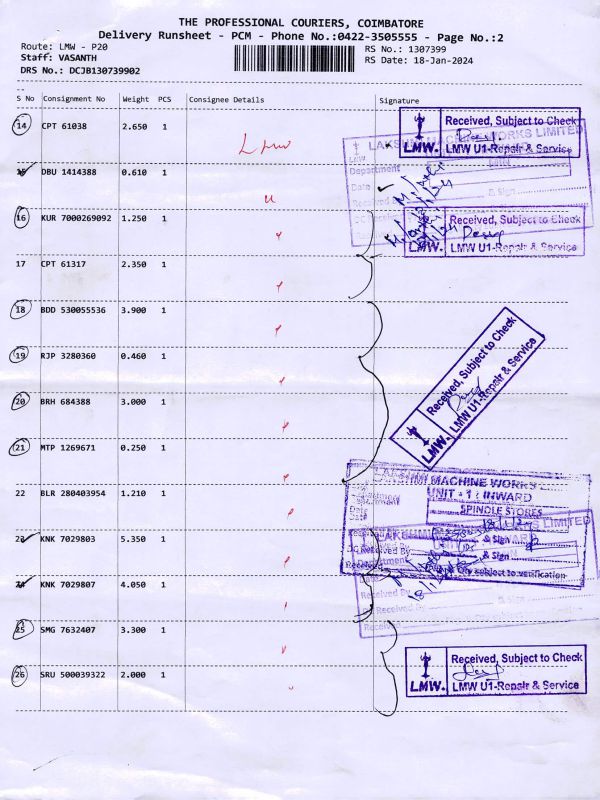 THE PROFESSIONAL COURIERS, COIMBATORE
Delivery Runsheet - PCM - Phone No.:0422-3505555 - Page No.:2
Route: LMW - P20
RS No.: 1307399
Staff: VASANTH
RS Date: 18-Jan-2024
DRS No.: DCJB130739902
S No Consignment No Weight PCS Consignee Details Signature
14 CPT 61038 2.650 1 LMW
15 DBU 1414388 0.610 1
16 KUR 7000269092 1.250 1
17 CPT 61317 2.350 1
18 BDD 530055536 3.900 1
19 RJP 3280360 0.460 1
20 BRH 684388 3.000 1
21 MTP 1269671 0.250 1
22 BLR 280403954 1.210 1
23 KNK 7029803 5.350 1
24 KNK 7029807 4.050 1
25 SMG 7632407 3.300 1
26 SRU 500039322 2.000 1
Received, Subject to Check
LMW. LMW U1-Repair & Service
LAKSHMI MACHINE WORKS LIMITED
Department
Date
Received
& Sign
Received, Subject to Check
LMW. LMW U1-Repair & Service
Received, Subject to Check
LMW. LMW U1-Repair & Service
LAKSHMI MACHINE WORKS
UNIT - 1 : INWARD
SPINDLE STORES
Date
LIMITED
& Sign
Received By
& Sign
subject to verification
Received By
Received By
Received
Received, Subject to Check
LMW. LMW U1-Repair & Service